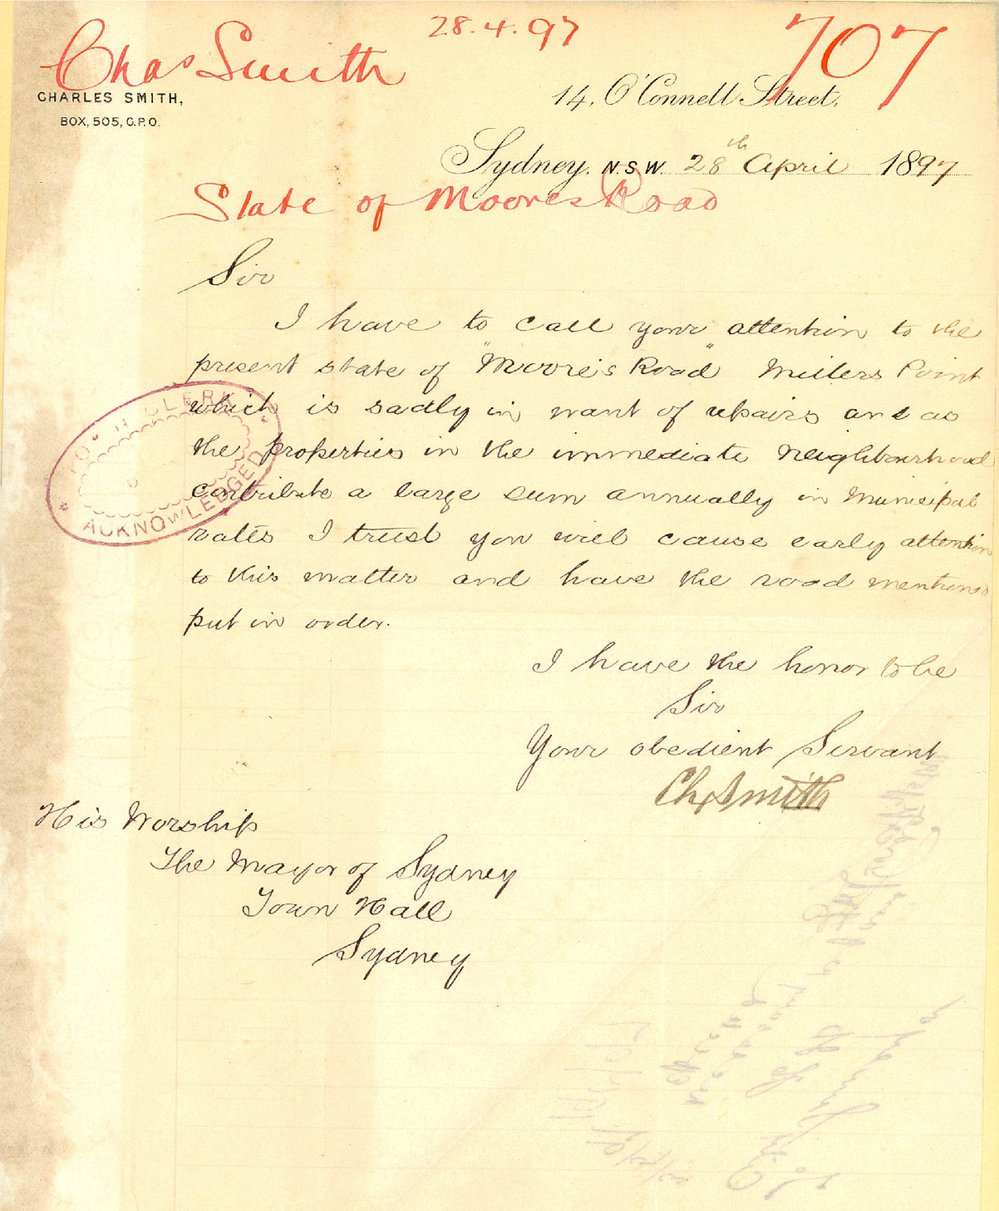 28.4.97
707
Chas Smith
CHARLES SMITH,
BOX, 505, G.P.O.
14, O'Connell Street,
Sydney, N.S.W. 28th April 1897
State of Moores Road
Sir
I have to call your attention to the
present state of "Moore's Road" Millers Point
which is sadly in want of repairs and as
the properties in the immediate neighbourhood
contribute a large sum annually in Municipal
rates I trust you will cause early attention
to this matter and have the road mentioned
put in order.
I have the honor to be
Sir
Your obedient Servant
Chs Smith
His Worship
The Mayor of Sydney
Town Hall
Sydney
TOWN CLERK
ACKNOWLEDGED